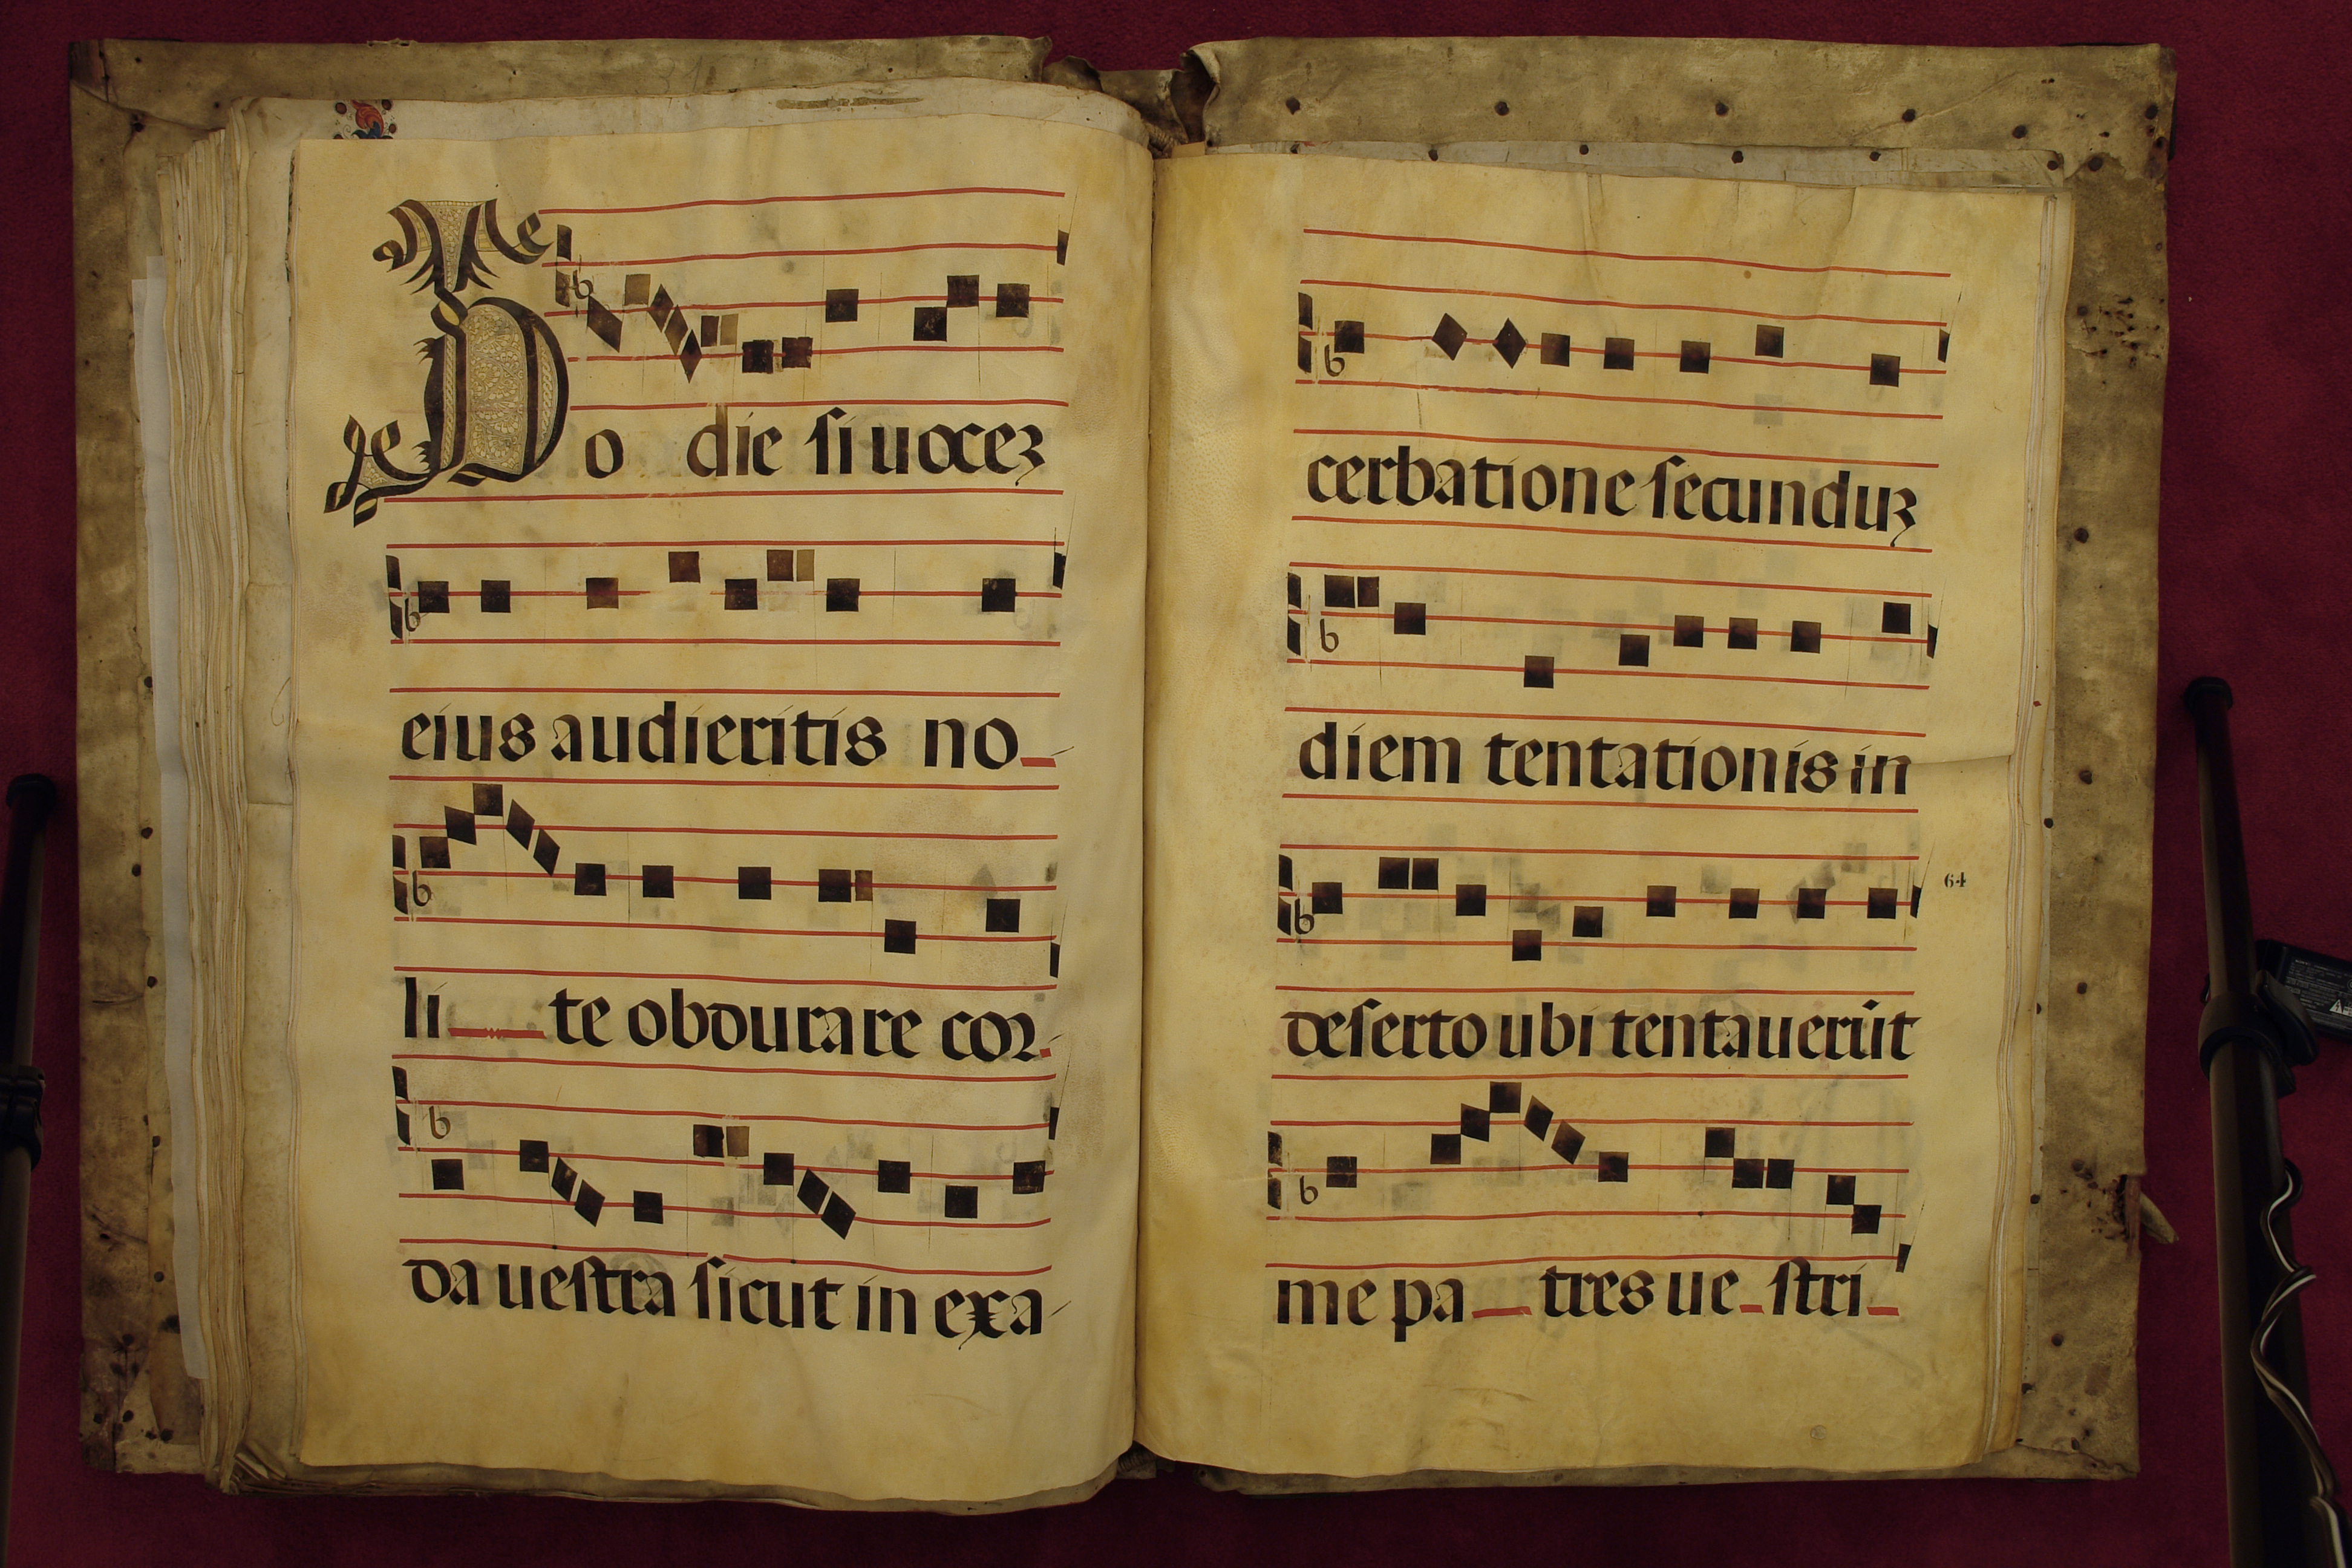 Hodie si uocez
eius audieritis no
li te obdurare cor
da uestra sicut in exa
cerbatione secunduz
diem tentationis in
64
deserto ubi tentauerūt
me pa tres ue stri